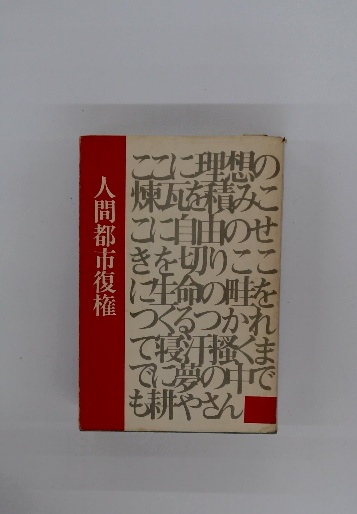 人間都市復権
ここに理想の
煉瓦を積みこ
こに自由のせ
きを切りここ
に生命の畦を
つくるつかれ
て寝汗掻くま
でに夢の中で
も耕やさん